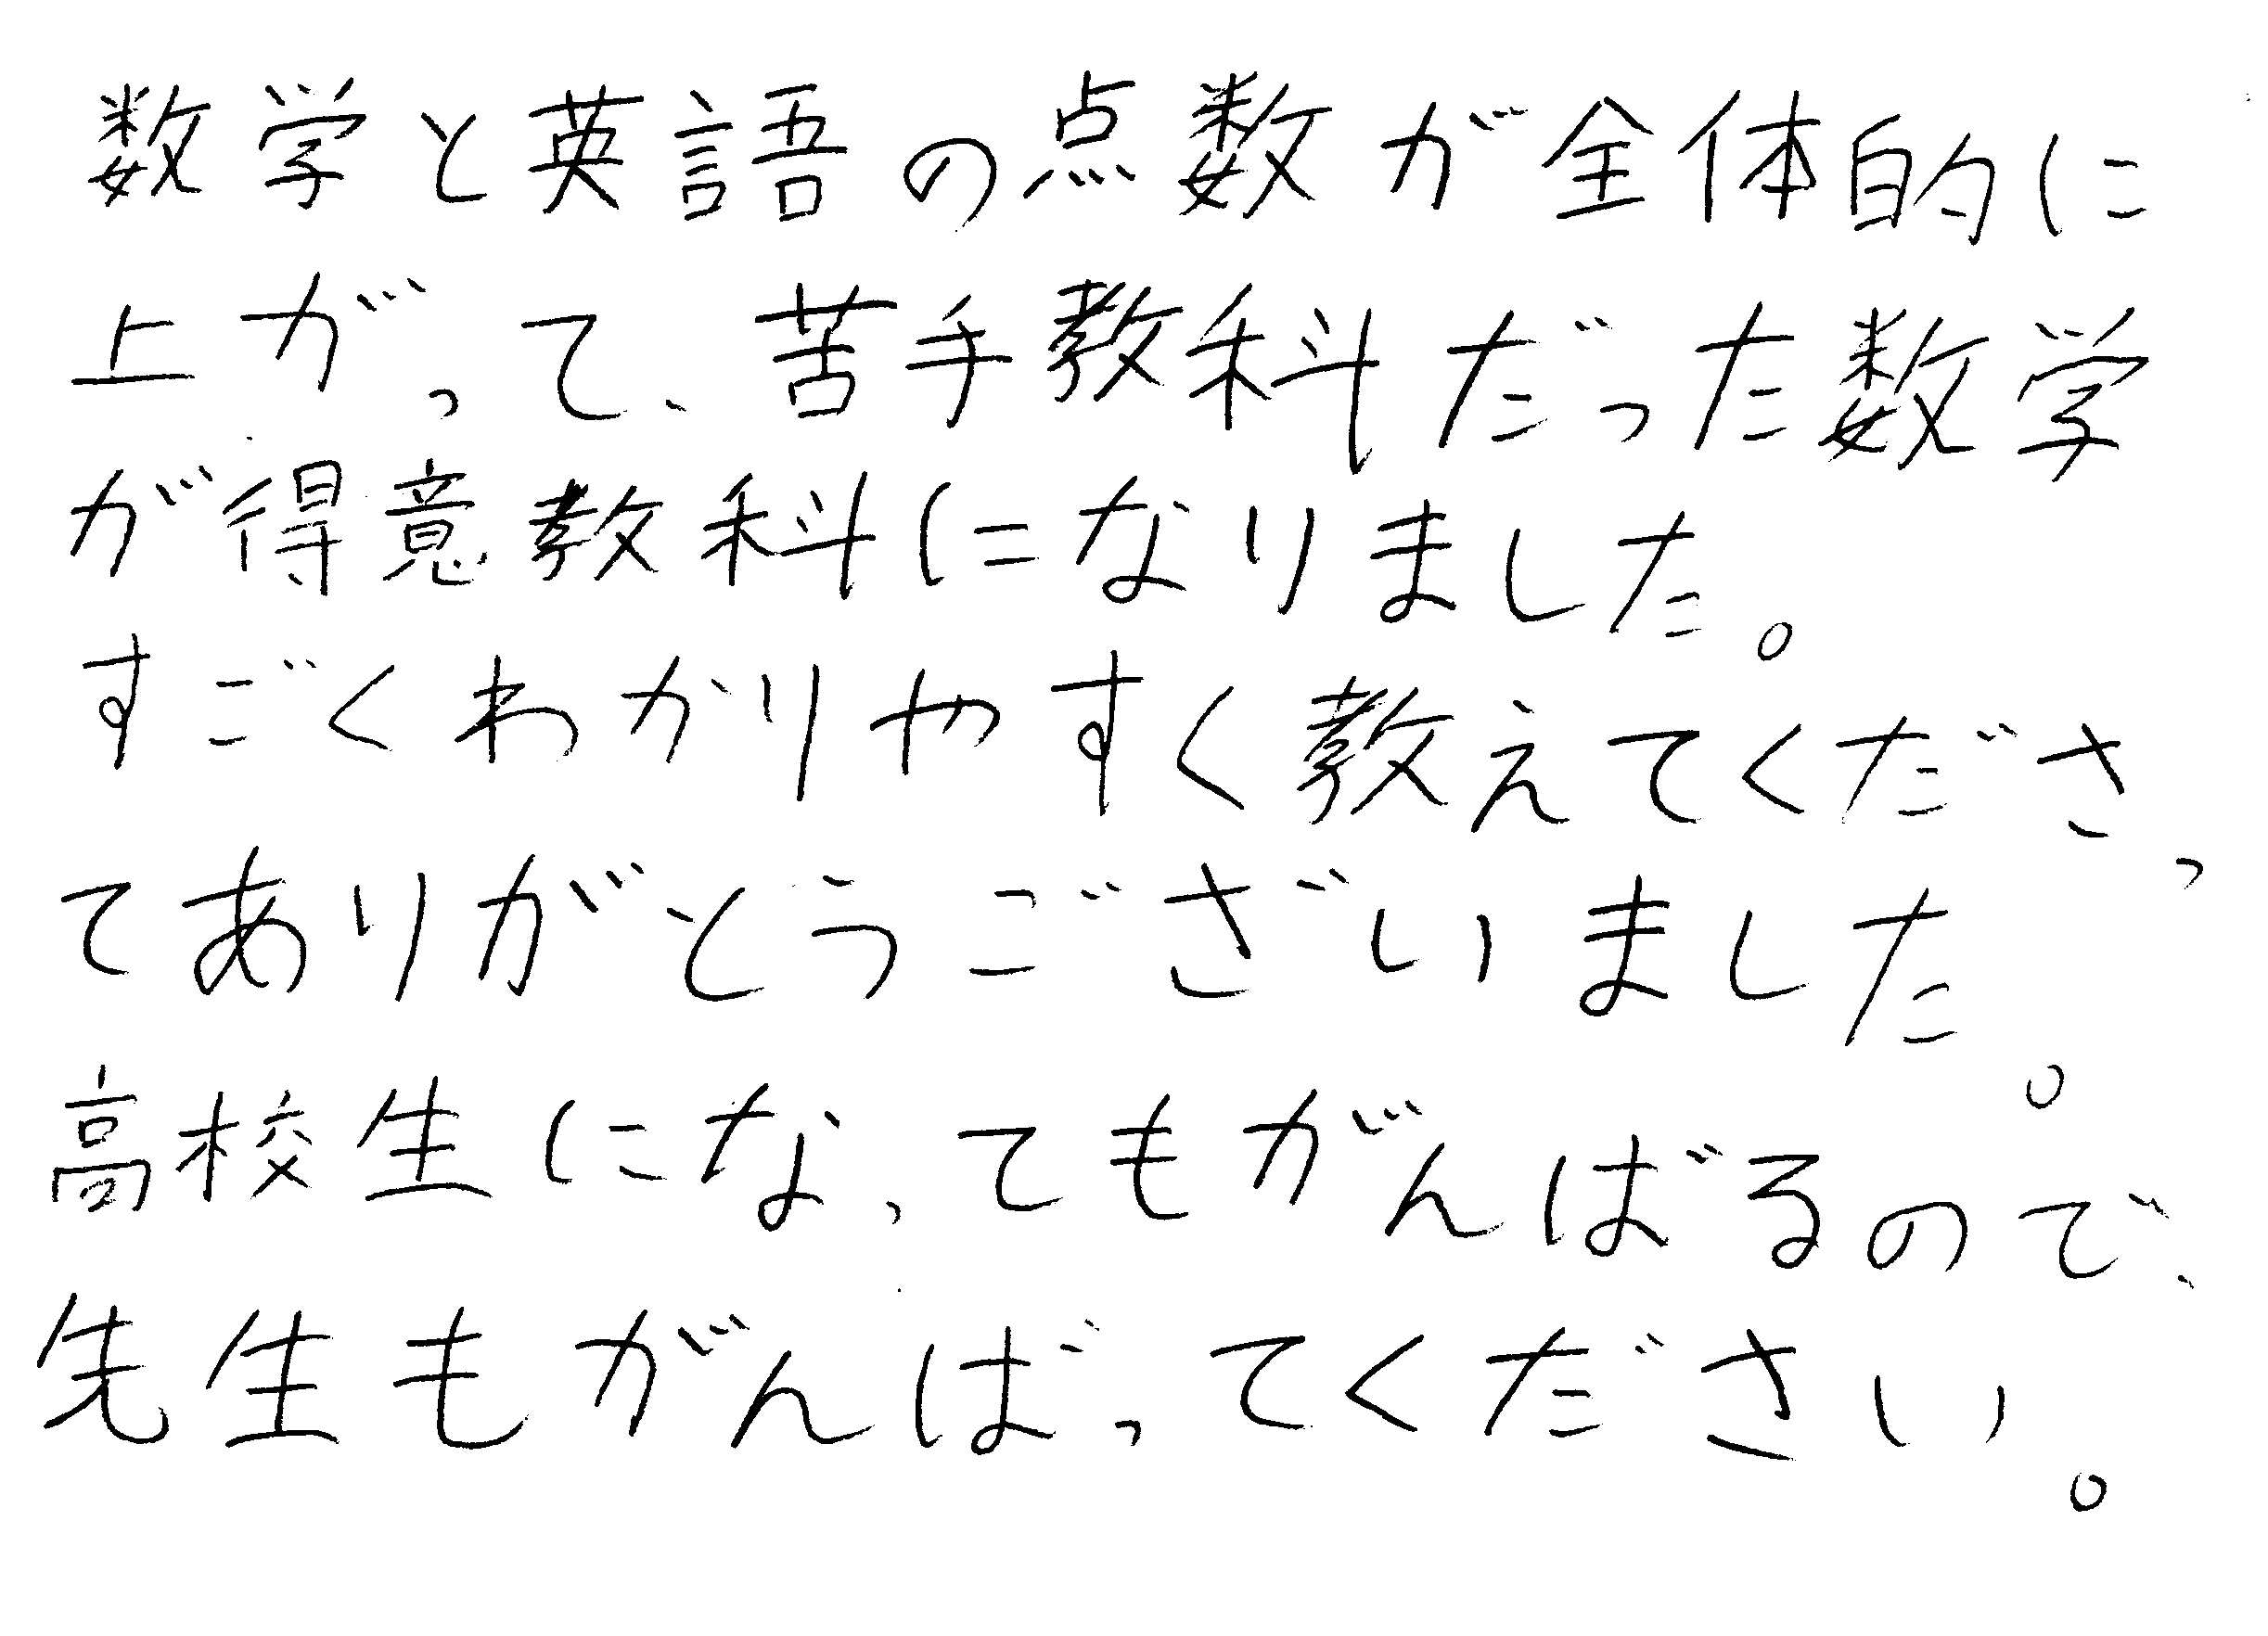 数学と英語の点数が全体的に
上がって、苦手教科だった数学
が得意教科になりました。
すごくわかりやすく教えてくださっ
てありがとうございました。
高校生になってもがんばるので、
先生もがんばってください。